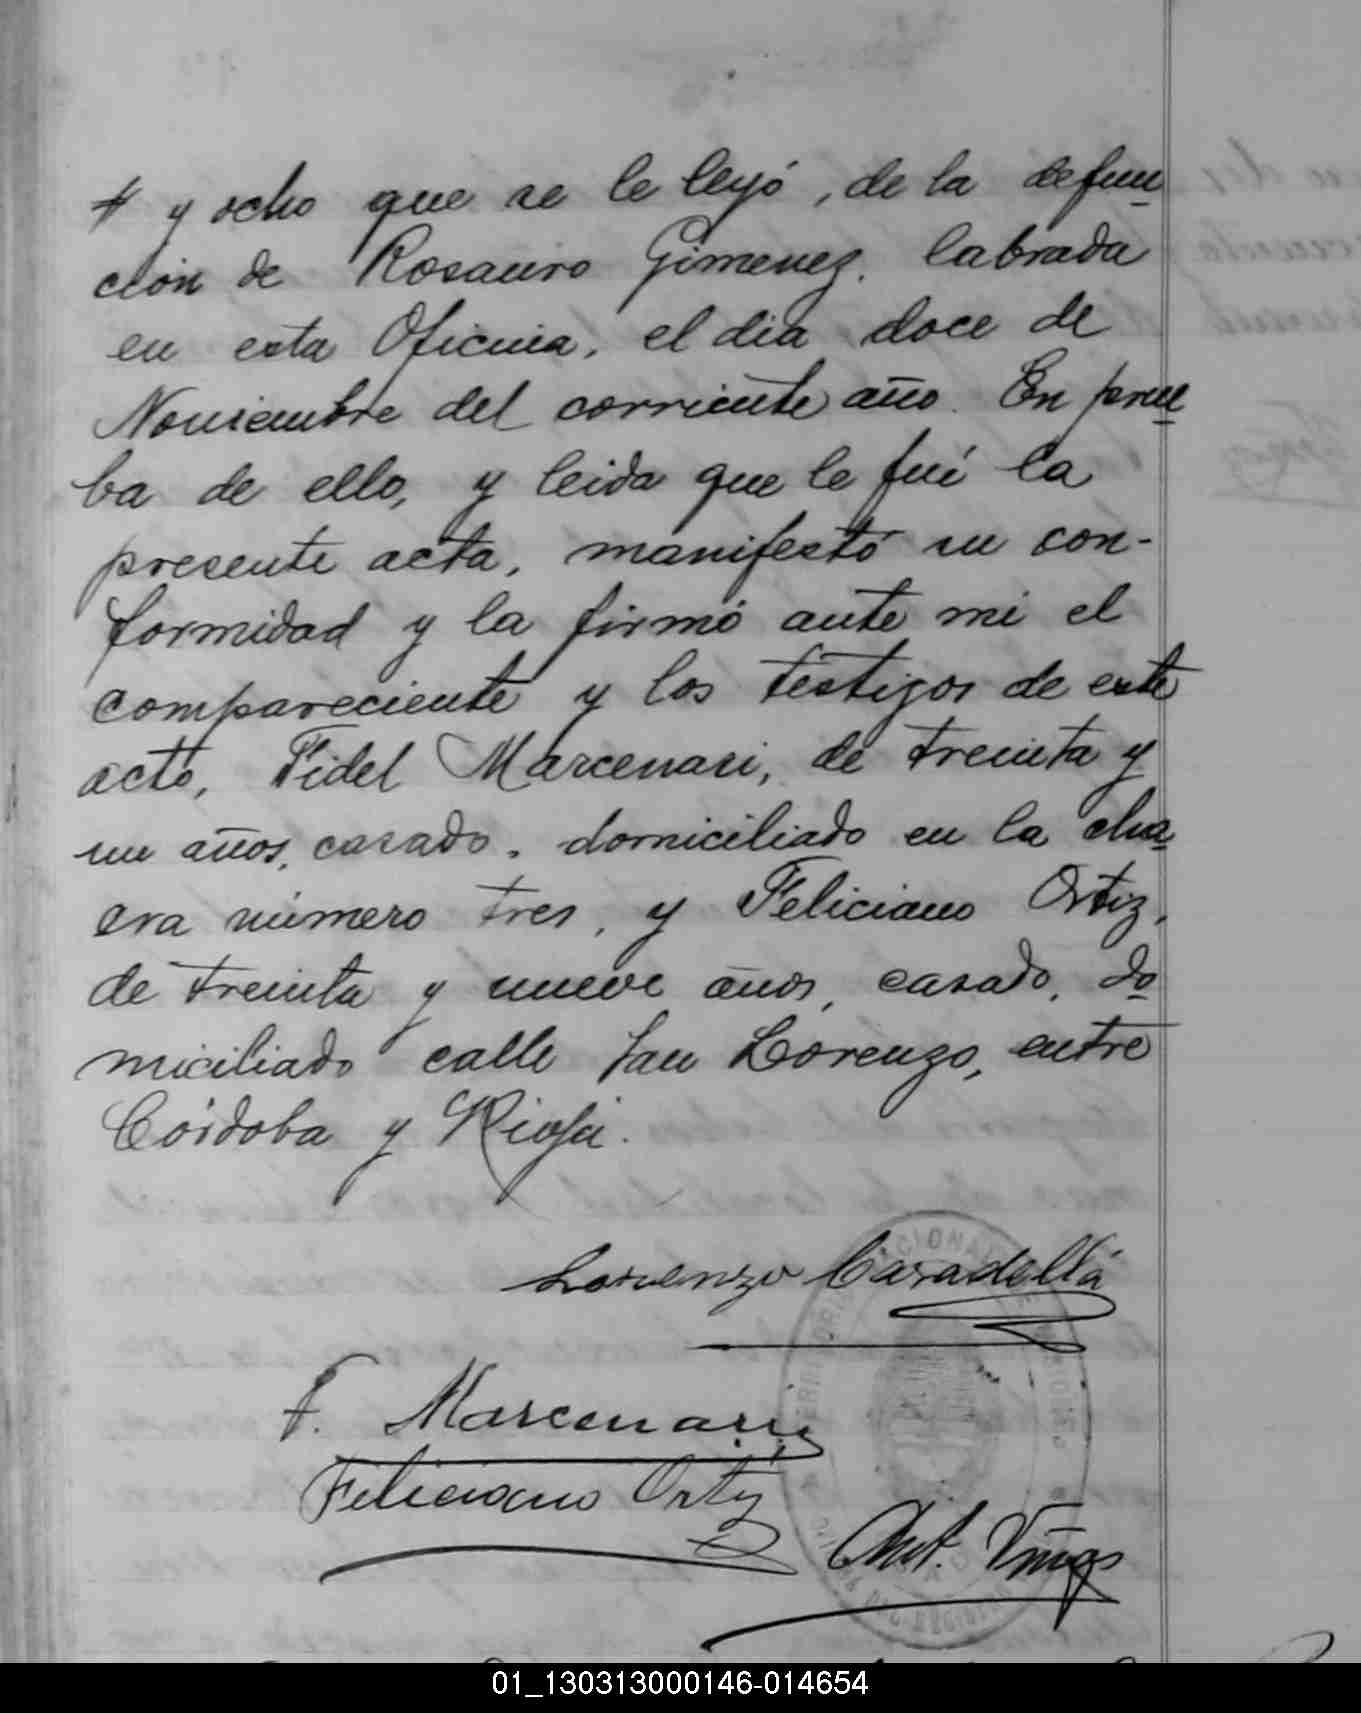 # y ocho que se le leyó, de la defun
ción de Rosauro Gimenez. labrada
en esta Oficina, el dia doce de
Noviembre del corriente año. En prue
ba de ello, y leida que le fué la
presente acta, manifestó su con-
formidad y la firmó ante mi el
compareciente y los testigos de este
acto, Fidel Marcenari, de treinta y
un años, casado, domiciliado en la cha
cra número tres, y Feliciano Ortiz,
de treinta y nueve años, casado, do
miciliado calle San Lorenzo, entre
Córdoba y Rioja.
Lorenzo Caradellá
F. Marcenari
Feliciano Ortiz
Ant.
01_130313000146-014654